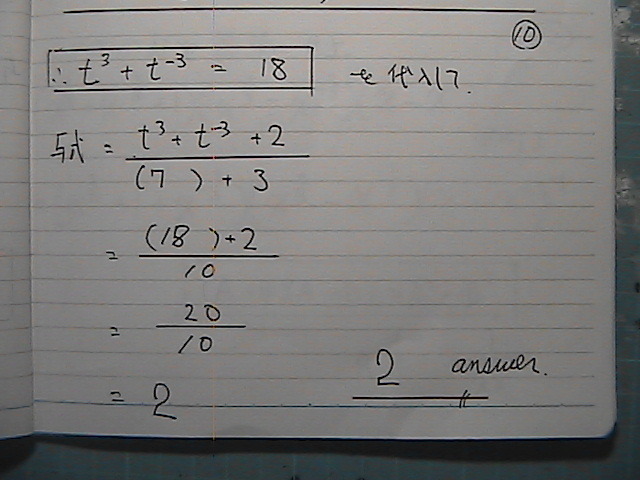 ⑩
∴ t³ + t⁻³ = 18 を代入して.
与式 = (t³ + t⁻³ + 2) / ((7) + 3)
= ((18) + 2) / 10
= 20 / 10
= 2
2 answer.